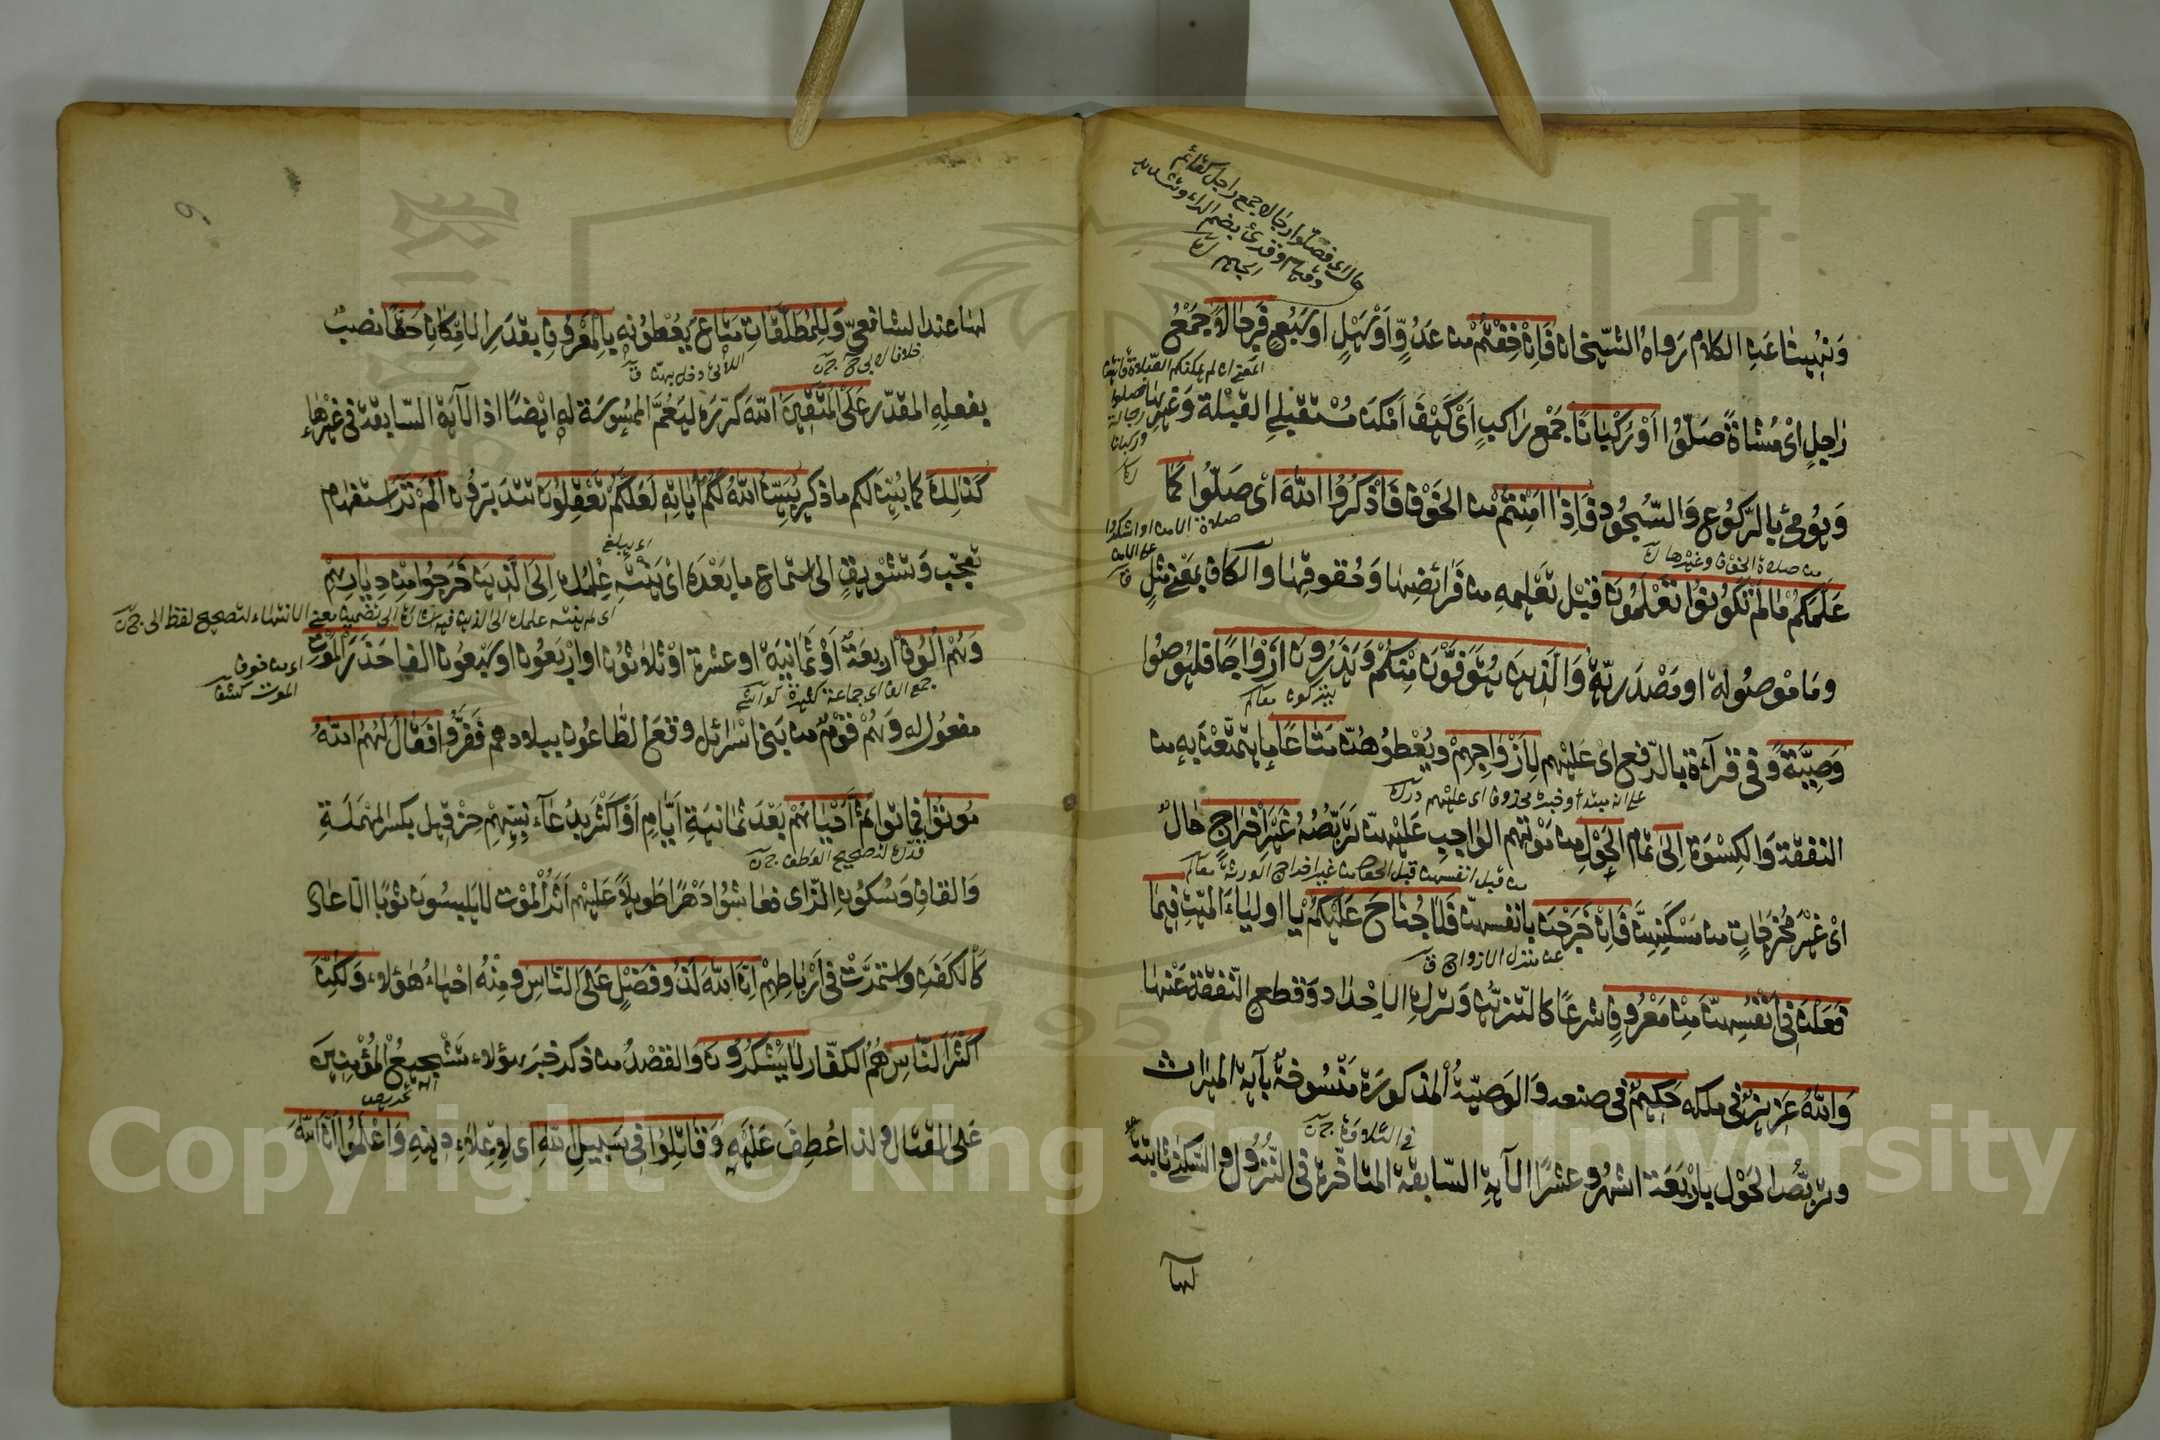 وَنُهِينَا عَنِ الكلام رَوَاهُ الشَّيْخان فَاِنْ خِفْتُمْ من عَدُوٍّ اَوْ سَيْلٍ او سَبُعٍ فَرِجَالًا جَمْعُ
رَاجِلٍ اىْ مُشَاةً صَلُّوْا اَوْ رُكْبَانًا جَمْع رَاكِبٍ اَىْ كَيْفَ اَمْكَنَ مُسْتَقْبِلِي القِبْلَة وَغَيْرِهَا
وَيُومِئ بالرُّكُوْعِ وَالسُّجُودِ فَاِذَا اَمِنْتُمْ من الخَوْفِ فَاذْكُرُوا اللّٰهَ اىْ صَلُّوْا كَمَا
عَلَّمَكُمْ مَا لَمْ تَكُوْنُوْا تَعْلَمُوْنَ قَبْل تَعْلِيمِهِ من فَرَائِضِهَا وَحُقُوقِهَا والكَافُ بِمَعْنَى مِثْلِ
وَمَا مَوْصُوْلَة او مَصْدَرِيَّة وَالَّذِيْنَ يُتَوَفَّوْنَ مِنْكُمْ وَيَذَرُوْنَ اَزْوَاجًا فليُوصُوا
وَصِيَّةً وَفِى قِرَآءَة بالرَّفْعِ اىْ عَلَيْهِم لِاَزْوَاجِهِمْ وَيُعْطوُهُنَّ مَتَاعًا مَا يَتَمَتَّعْنَ بِهِ من
النفقة وَالكِسْوَة اِلَى تمام الْحَوْلِ من مَوْتِهِم الوَاجِبِ عَلَيْهِنَّ تَرَبُّصُهُ غَيْرَ اِخْرَاجٍ حَال
اىْ غَيْرَ مُخْرَجَاتٍ من مَسْكَنِهِنَّ فَاِنْ خَرَجْنَ بانفسهنّ فَلَا جُنَاحَ عَلَيْكُمْ يا اولياءَ المَيّتِ فِيْمَا
فَعَلْنَ فِىْ اَنْفُسِهِنَّ مِنْ مَعْرُوْفٍ شرعًا كالتَّزَيُّن وَتَرْكِ الاِحْدَاد وَقطعِ النَّفقَة عَنْهَا
وَاللّٰهُ عَزِيْزٌ فى ملكه حَكِيْمٌ فى صنعه وَالوَصِيَّةُ المذكورَة مَنْسُوخَةٌ بآية الميراث
وَتَرَبُّصُ الحَوْل بِاَرْبَعَة اشهُر وعَشْرًا الآيَة السَّابقَة المتاخّرة فى النُّزُولِ وَالسُّكنَى ثابتَة
لها
لهَا عند الشافعىّ وَلِلْمُطَلَّقَاتِ مَتَاعٌ يُعْطَوْنَهُ بِالْمَعْرُوْفِ بقَدَرِ الاِمْكَانِ حَقًّا نصِبَ
بفعلِهِ المقدّر عَلَى الْمُتَّقِيْنَ اللّٰهَ كرّرَه ليَعُمَّ الممسُوسَة ايْضًا اذ الآيَة السّابقة فى غَيْرِهَا
كَذٰلِكَ كما بُيّنَ لكم ما ذكر يُبَيِّنُ اللّٰهُ لَكُمْ اٰيَاتِهٖ لَعَلَّكُمْ تَعْقِلُوْنَ تَتَدَبَّرُوْنَ اَلَمْ تَرَ استفهام
تَعْجيْب وَتَشْوِيْقٍ الى استماع ما بَعْدَه اىْ يَنْتَهِ عِلمُك اِلَى الَّذِيْنَ خَرَجُوْا مِنْ دِيَارِهِمْ
وَهُمْ اُلُوْفٌ اَرْبَعَةٌ اَوْ ثَمَانيَة او عشرَة اوْ ثلاثوْنَ او ارْبَعُونَ او سَبْعُونَ الفا حَذَرَ الْمَوْتِ
مفعُول له وَهُمْ قَوْمٌ من بَنى اسْرَائيل وقعَ الطَّاعُون ببلادهم فَفَرُّوا فَقَالَ لَهُمُ اللّٰهُ
مُوْتُوْا فماتوا ثُمَّ اَحْيَاهُمْ بَعْدَ ثمانيَة اَيَّامٍ اَوْ اَكْثَر بدُعَآءِ نَبِيِّهِمْ حِزْقِيل بكسر المهْمَلَةِ
وَالقافِ وَسُكُون الزّاى فعَاشُوا دَهْرًا طَويلًا عَلَيْهِم اَثَرُ المَوْت لا يَلبِسُونَ ثوبًا الّا عَادَ
كالكفَنِ واستمرّتْ فى اسْبَاطِهِمْ اِنَّ اللّٰهَ لَذُوْ فَضْلٍ عَلَى النَّاسِ ومِنْهُ احْياءُ هٰؤلاء وَلٰكِنَّ
اَكْثَرَ النَّاسِ هُمُ الكفّار لَا يَشْكُرُوْنَ وَالقصْدُ من ذكر خبَر هؤلاء تَشجِيعُ المُؤْمِنينَ
عَلى القتال ولذا عُطِفَ عَلَيْهِ وَقَاتِلُوْا فِىْ سَبِيْلِ اللّٰهِ اى لاِعْلاءِ دِينِهِ وَاعْلَمُوْا اَنَّ اللّٰهَ
Copyright © King Saud University
1957